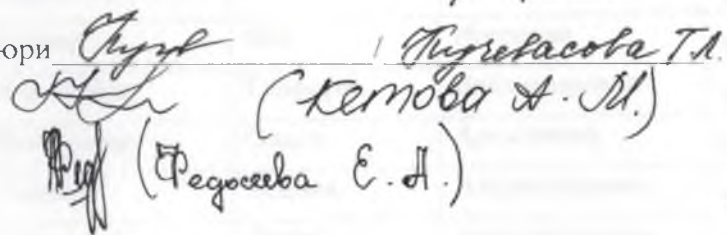 юри / Пучевасова Т.Л.
(Кетова А.М.)
(Федосеева Е.А.)